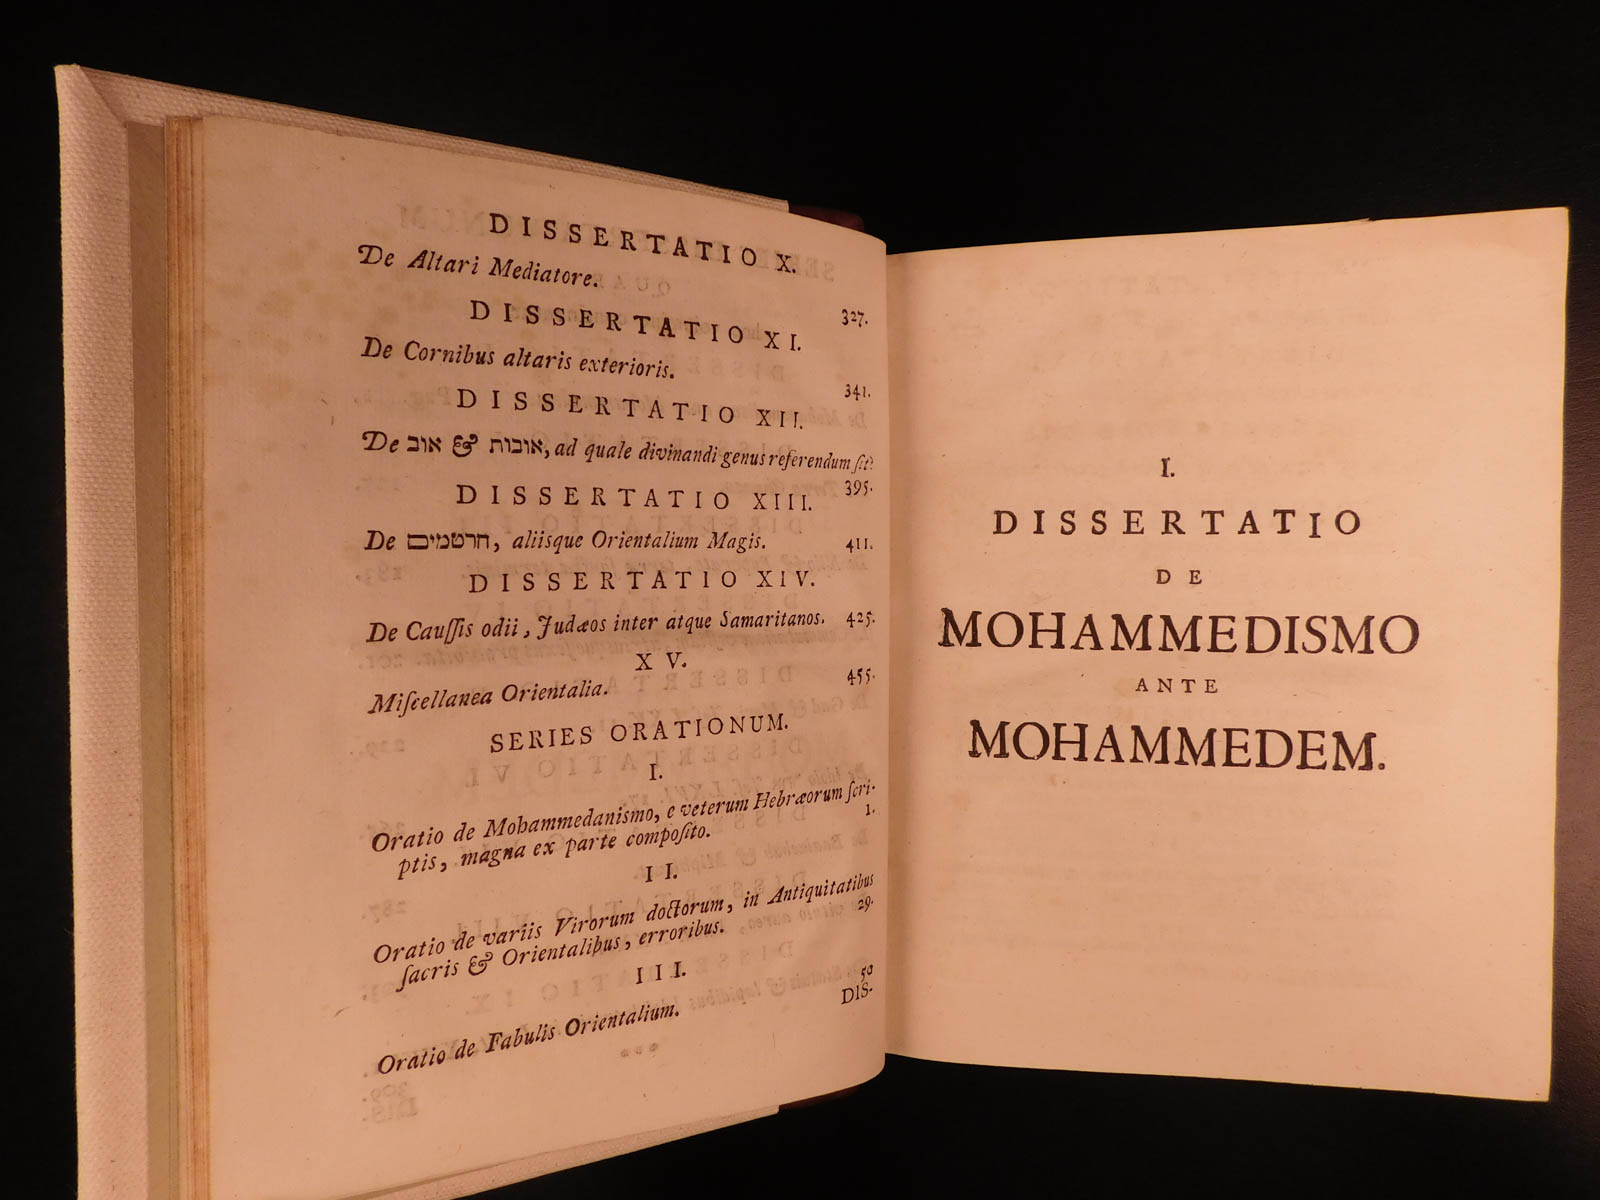 DISSERTATIO X.
De Altari Mediatore.
327.
DISSERTATIO XI.
De Cornibus altaris exterioris.
341.
DISSERTATIO XII.
De אוב & אובות, ad quale divinandi genus referendum ſit?
395.
DISSERTATIO XIII.
De חרטמים, aliisque Orientalium Magis. 411.
DISSERTATIO XIV.
De Cauſſis odii, Judæos inter atque Samaritanos. 425.
XV.
Miſcellanea Orientalia. 455.
SERIES ORATIONUM.
I.
Oratio de Mohammedanismo, e veterum Hebræorum ſcri-
ptis, magna ex parte compoſito. 1.
II.
Oratio de variis Virorum doctorum, in Antiquitatibus
ſacris & Orientalibus, erroribus. 29.
III.
Oratio de Fabulis Orientalium. 50
DIS-
I.
DISSERTATIO
DE
MOHAMMEDISMO
ANTE
MOHAMMEDEM.